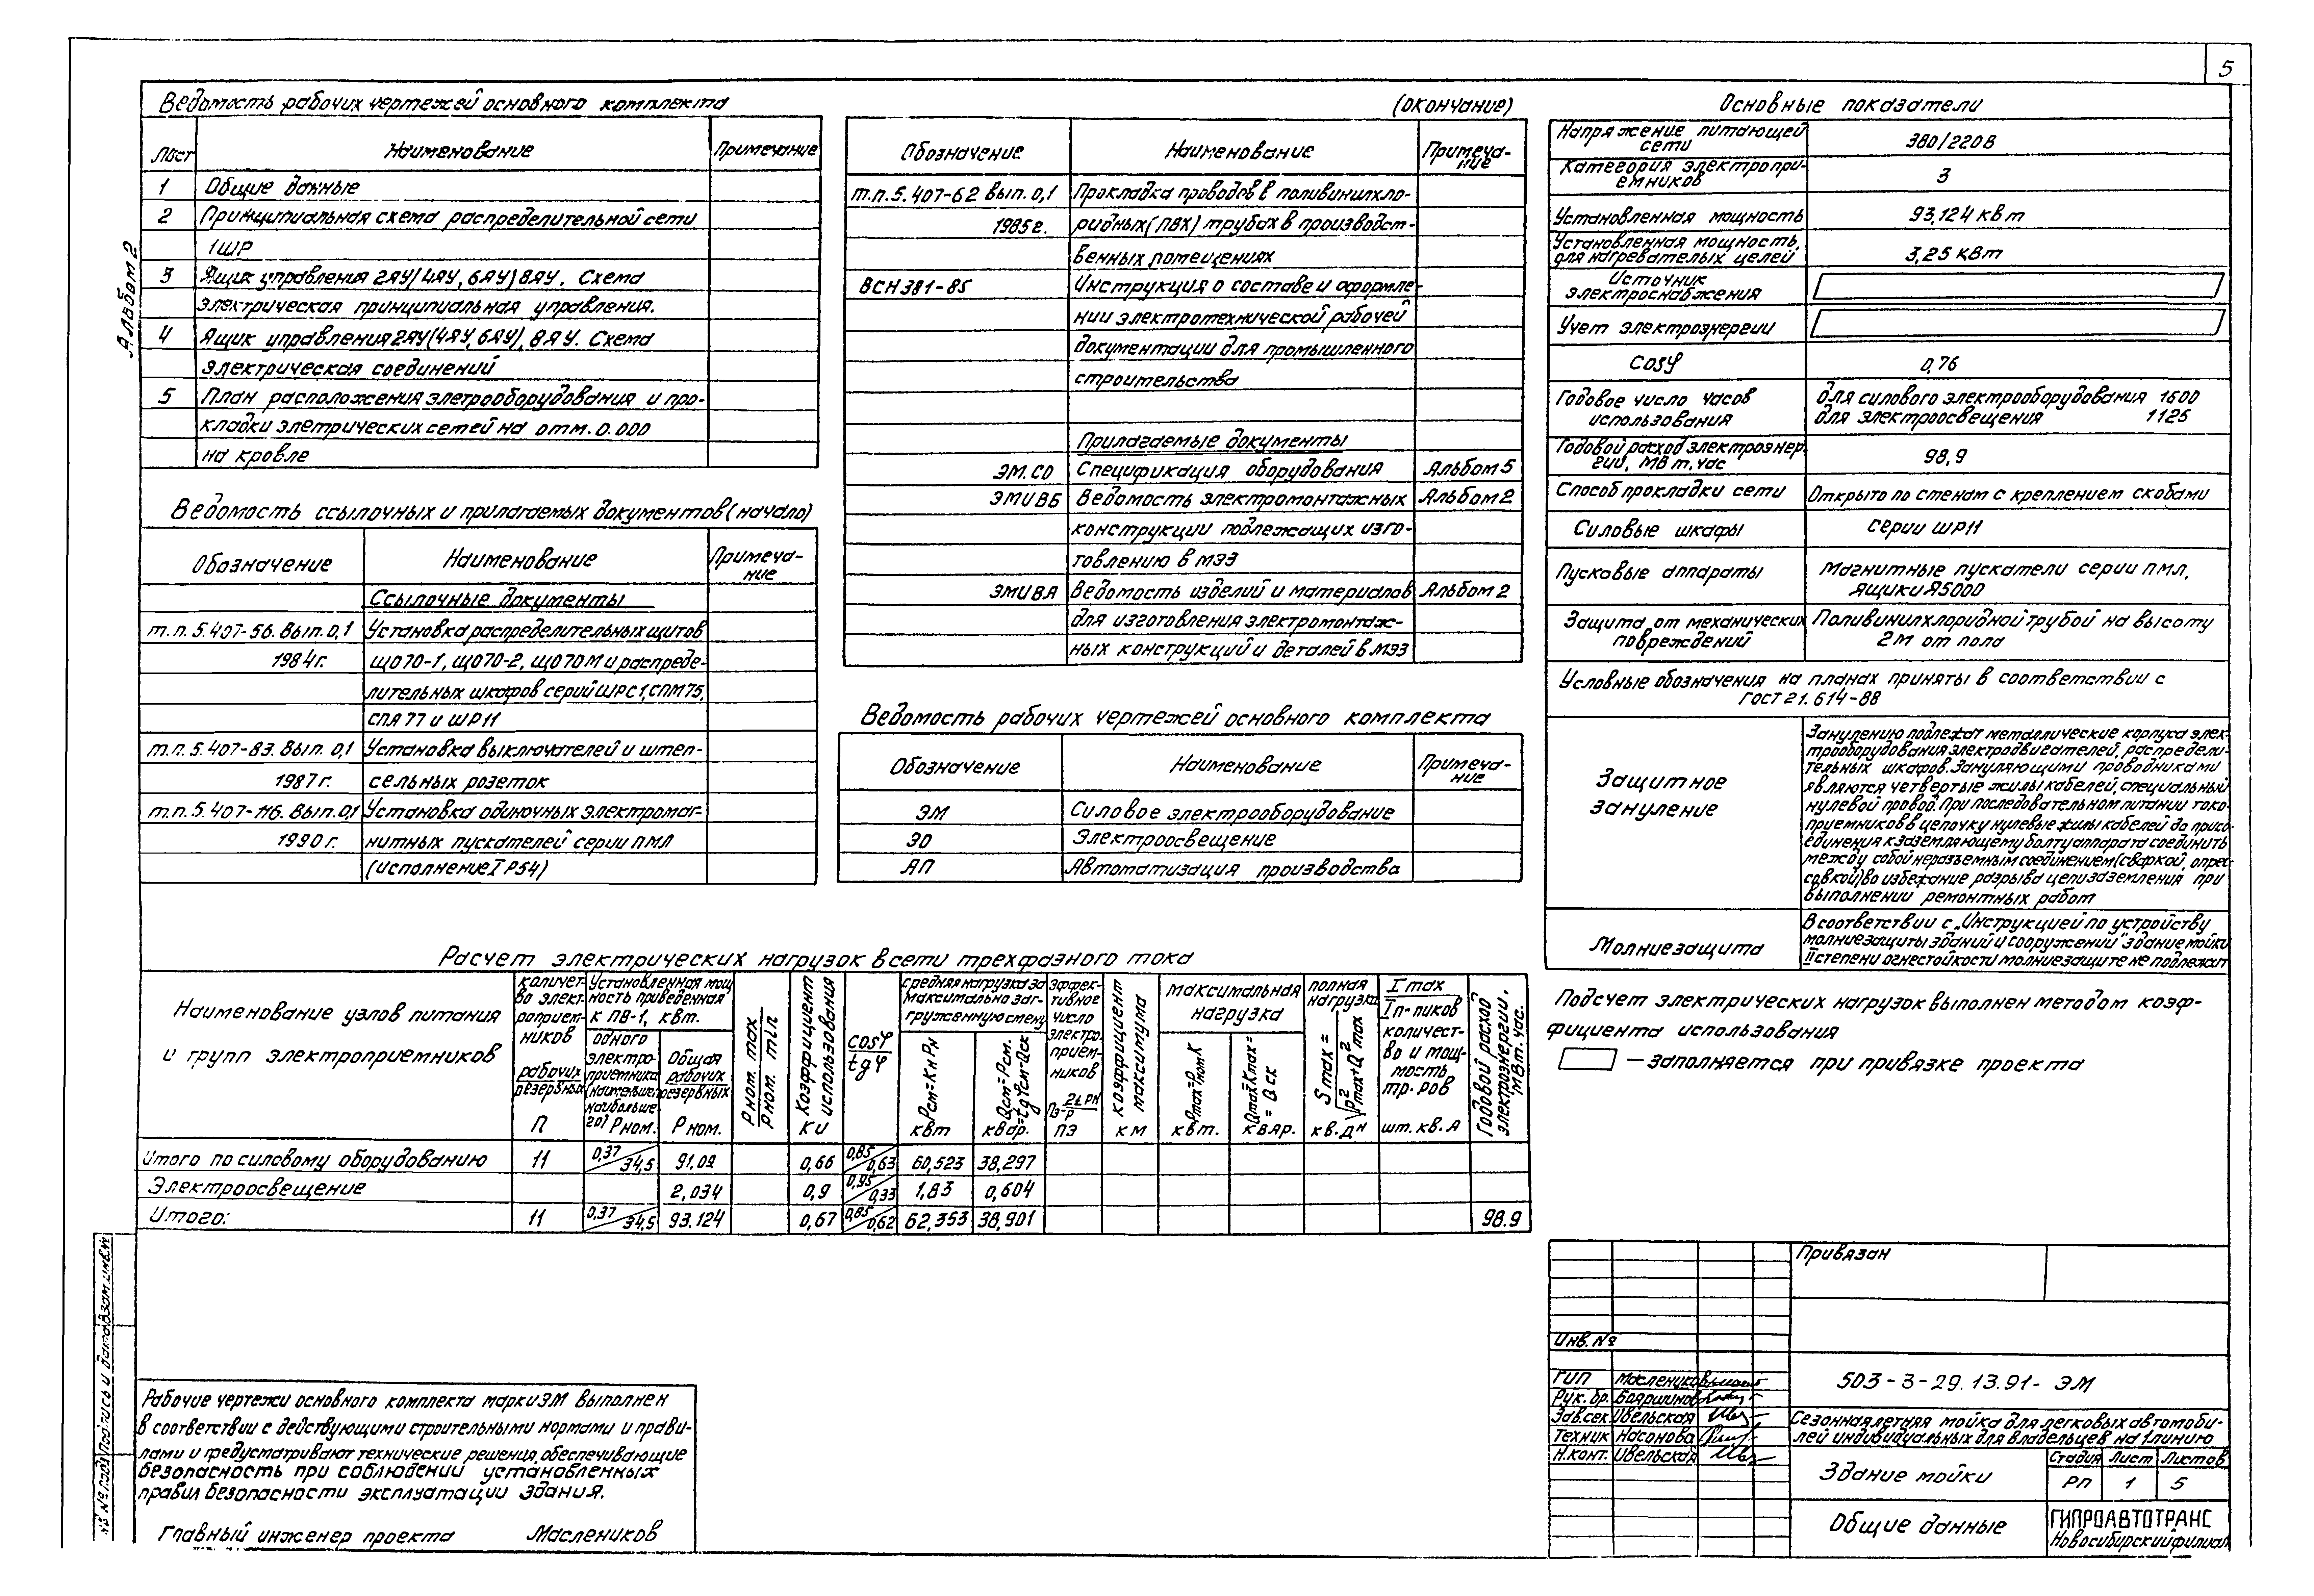 5
Альбом 2
Ведомость рабочих чертежей основного комплекта
Лист Наименование Примечание
1 Общие данные
2 Принципиальная схема распределительной сети
1ШР
3 Ящик управления 2ЯУ/4ЯУ, 6ЯУ) 8ЯУ. Схема
электрическая принципиальная управления.
4 Ящик управления 2ЯУ(4ЯУ, 6ЯУ), 8ЯУ. Схема
электрическая соединений
5 План расположения элетрооборудования и про-
кладки элетрических сетей на отм. 0.000
на кровле
Ведомость ссылочных и прилагаемых документов (начало)
Обозначение Наименование Примеча-
ние
Ссылочные документы
т.п. 5.407-56. Вып. 0,1 Установка распределительных щитов
1984г. ЩО70-1, ЩО70-2, ЩО70М и распреде-
лительных шкафов серий ШРС1, СПМ75,
СПА 77 и ШР11
т.п. 5.407-83. Вып. 0,1 Установка выключателей и штеп-
1987г. сельных розеток
т.п. 5.407-116. Вып. 0,1 Установка одиночных электромаг-
1990г. нитных пускателей серии ПМЛ
(исполнение IP54)
(окончание)
Обозначение Наименование Примеча-
ние
т.п. 5.407-62 вып. 0,1 Прокладка проводов в поливинилхло-
1985г. ридных (ПВХ) трубах в производст-
венных помещениях
ВСН 381-85 Инструкция о составе и оформле-
нии электротехнической рабочей
документации для промышленного
строительства
Прилагаемые документы
ЭМ.СО Спецификация оборудования Альбом 5
ЭМИ ВБ Ведомость электромонтажных Альбом 2
конструкции подлежащих изго-
товлению в МЭЗ
ЭМИ ВА Ведомость изделий и материалов Альбом 2
для изготовления электромонтаж-
ных конструкций и деталей в МЭЗ
Ведомость рабочих чертежей основного комплекта
Обозначение Наименование Примеча-
ние
ЭМ Силовое электрооборудование
ЭО Электроосвещение
АП Автоматизация производства
Основные показатели
Напряжение питающей
сети 380/220В
Категория электропри-
емников 3
Установленная мощность 93,124 кВт
Установленная мощность,
для нагревательных целей 3,25 кВт
Источник
электроснабжения
Учет электроэнергии
Cosφ 0,76
Годовое число часов
использования
для силового электрооборудования 1600
для электроосвещения 1125
Годовой расход электроэнер-
гии, МВт.час 98,9
Способ прокладки сети Открыто по стенам с креплением скобами
Силовые шкафы серии ШР11
Пусковые аппараты Магнитные пускатели серии ПМЛ,
ящики Я5000
Защита от механических
повреждений
Поливинилхлоридной трубой на высоту
2м от пола
Условные обозначения на планах приняты в соответствии с
ГОСТ 21.614-88
Защитное
зануление
Занулению подлежат металлические корпуса элек-
трооборудования электродвигателей, распредели-
тельных шкафов. Зануляющими проводниками
являются четвертые жилы кабелей, специальный
нулевой провод. При последовательном питании токо-
приемников в цепочку нулевые жилы кабелей до присо-
единения к заземляющему болту аппарата соединить
между собой неразъемным соединением (сваркой, опрес-
совкой) во избежание разрыва цепи заземления при
выполнении ремонтных работ
Молниезащита
В соответствии с „Инструкцией по устройству
молниезащиты зданий и сооружений" здание мойки
II степени огнестойкости молниезащите не подлежит
Подсчет электрических нагрузок выполнен методом коэф-
фициента использования
— заполняется при привязке проекта
Расчет электрических нагрузок в сети трехфазного тока
Наименование узлов питания
и групп электроприемников
количест-
во элект-
роприем-
ников
рабочих
резервных
П
Установленная мощ
ность приведенная
к ПВ-1, кВт.
одного
электро-
приемника
(наименьше
наибольше-
го) Рном.
Общая
рабочих
резервных
Рном.
Рном. max
Рном. min
Коэффициент
использования
КИ
cosφ
tgφ
средняя нагрузка за
максимально заг-
руженную смену
Рсм=Кн Рн
кВт
Qсм=Рсм.
=tgφсм=Qск
квар.
эффек-
тивное
число
электро-
прием-
ников
ПЭ
коэффициент
максимума
КМ
максимальная
нагрузка
Pmax=PномК
кВт.
Qmax=Kmax=
=Qск
кВАр.
полная
нагрузка
Smax=
√P²max+Q²max
I max
I п-пиков
количест-
во и мощ-
мость
тр-ров
шт. кв.А
Годовой расход
электроэнергии,
МВт.час.
Итого по силовому оборудованию 11 0,37/34,5 91,09 0,66 0,85/0,63 60,523 38,297
Электроосвещение 2,034 0,9 0,95/0,33 1,83 0,604
Итого: 11 0,37/34,5 93.124 0,67 0,85/0,62 62,353 38,901 98.9
Рабочие чертежи основного комплекта марки ЭМ выполнен
в соответствии с действующими строительными нормами и прави-
лами и предусматривают технические решения, обеспечивающие
безопасность при соблюдении установленных
правил безопасности эксплуатации здания.
Главный инженер проекта Маслеников
Привязан
Инв. №
ГИП Маслеников
Рук. бр. Бояршинов
Зав.сек. Ивельская
Техник Насонова
Н.конт. Ивельская
503-3-29.13.91- ЭМ
Сезонная летняя мойка для легковых автомоби-
лей индивидуальных для владельцев на 1 линию
Здание мойки
Стадия Лист Листов
РП 1 5
Общие данные
ГИПРОАВТОТРАНС
Новосибирский филиал
Инв № подл Подпись и дата Взам.инв.№